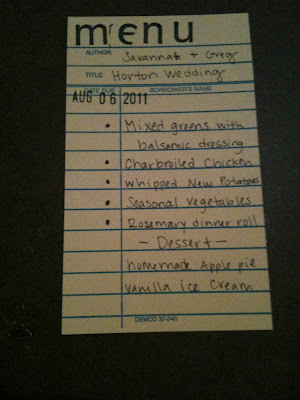 menu
AUTHOR Savannah + Greg
TITLE Horton Wedding
DATE DUE BORROWER'S NAME
AUG 06 2011
• Mixed greens with
balsamic dressing
• Charbroiled Chicken
• Whipped New Potatoes
• Seasonal Vegetables
• Rosemary dinner roll
- Dessert -
homemade Apple pie
vanilla ice cream
DEMCO 32-240